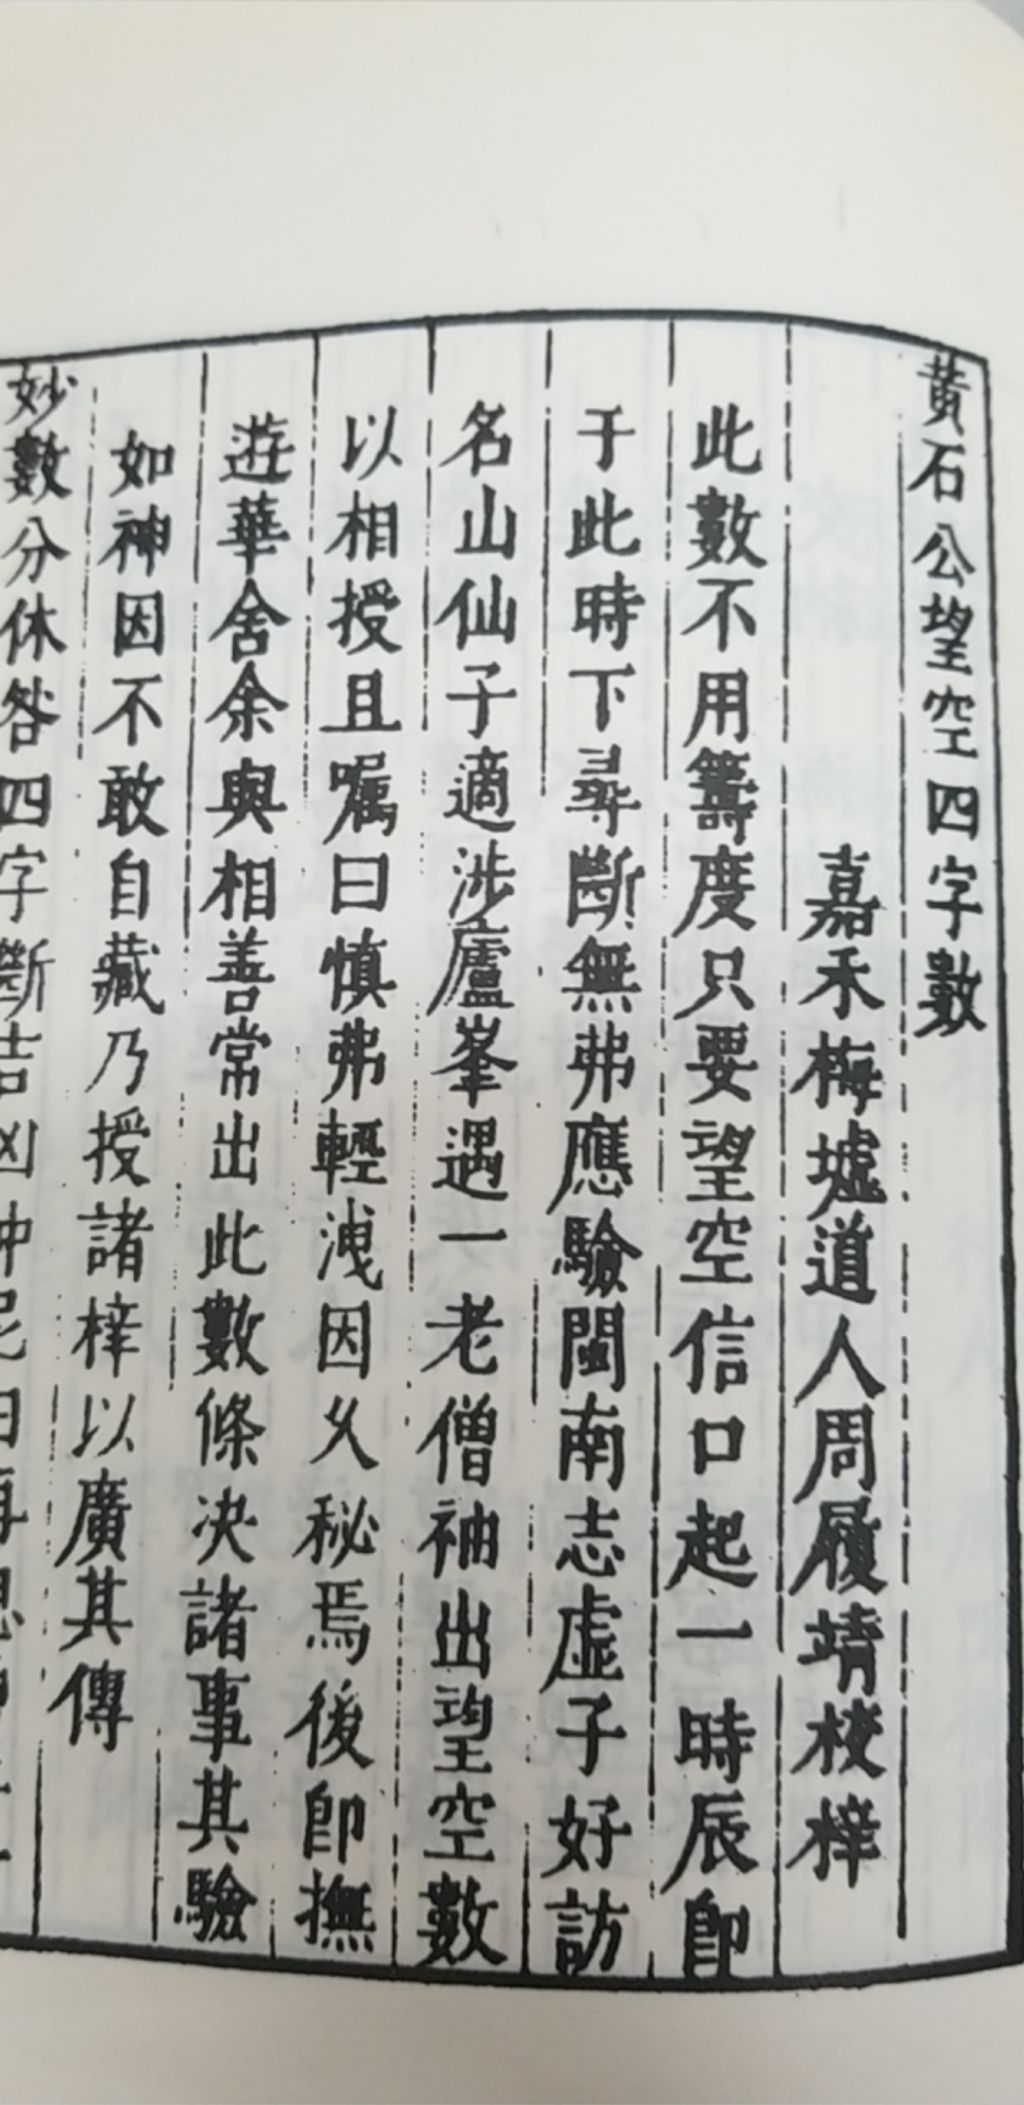 黄石公望空四字數
嘉禾梅墟道人周履靖校梓
此數不用籌度只要望空信口起一時辰即
于此時下尋斷無弗應驗閩南志虛子好訪
名山仙子適涉廬峯遇一老僧袖出望空數
以相授且嘱曰慎弗輕洩因乆秘焉後即撫
遊華舍余與相善常出此數條决諸事其驗
如神因不敢自藏乃授諸梓以廣其傳
妙數分休咎四字斷吉凶